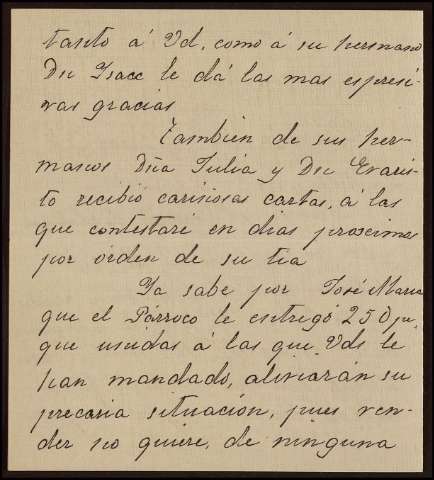 tanto á Vd, como á su hermano
Dn Isacc le dá las mas espresi-
vas gracias
Tambien de sus her-
manos Dña Julia y Dn Evaris-
to recibió cariñosas cartas, á las
que contestaré en dias proximos
por orden de su tia
Ya sabe por José Maria
que el Párroco le entregó 250 ps,
que unidas á las que Vds le
han mandado, aliviarán su
precaria situación, pues ven-
der no quiere, de ninguna